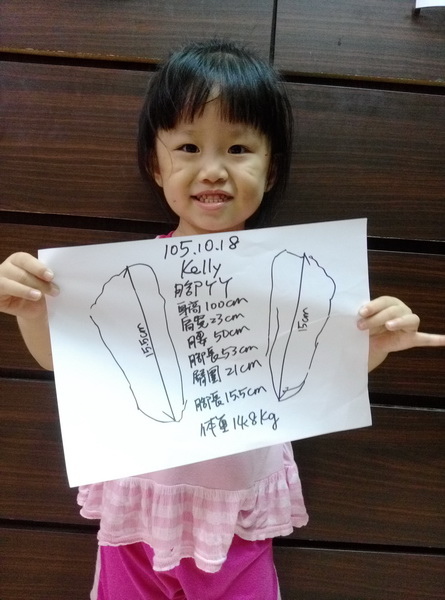 105.10.18
Kelly
腳丫丫
身高100cm
肩寬23cm
腰 50cm
腳長53cm
圍 21cm
腳長15.5cm
体重14.8kg
15.5cm
15cm